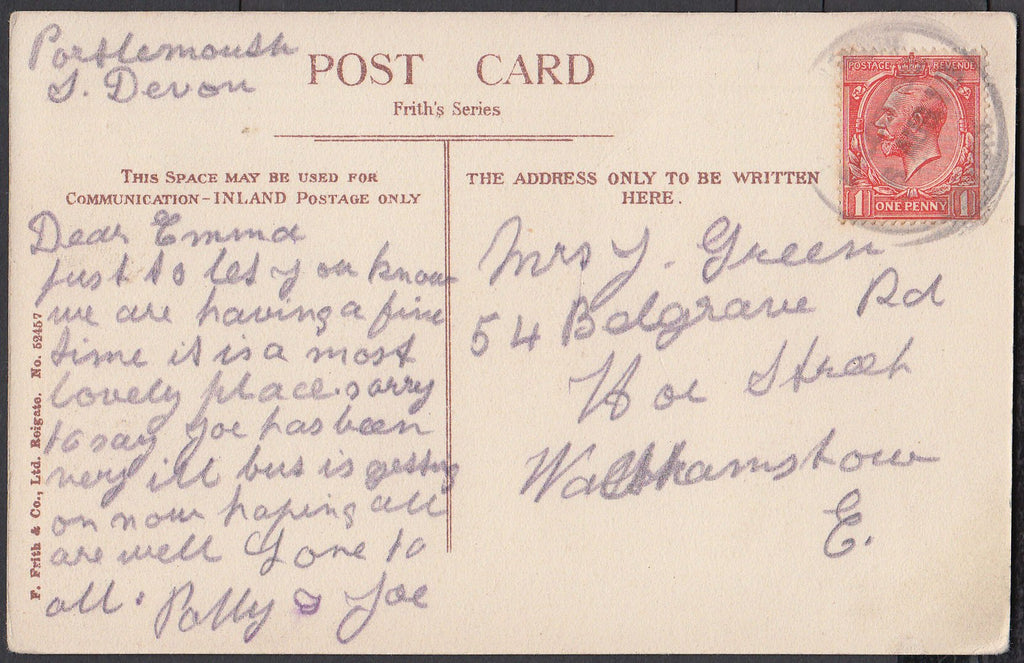 Portlemouth
S. Devon
POST CARD
Frith's Series
THIS SPACE MAY BE USED FOR
COMMUNICATION-INLAND POSTAGE ONLY
Dear Emma
just to let you know
we are having a fine
time it is a most
lovely place. sorry
to say Joe has been
very ill but is getting
on now hoping all
are well Love to
all. Polly & Joe
THE ADDRESS ONLY TO BE WRITTEN
HERE.
Mrs J. Green
54 Belgrave Rd
Hoe Street
Walthamstow
E.
POSTAGE REVENUE
1 ONE PENNY 1
F. Frith & Co., Ltd. Reigate. No. 52457